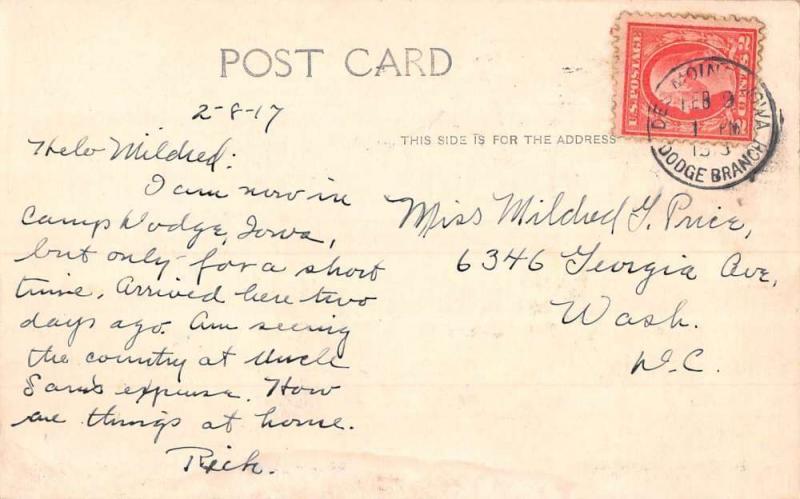 POST CARD
2-8-17
Helo Mildred:
I am now in
Camp Dodge, Iowa,
but only for a short
time. Arrived here two
days ago. Am seeing
the country at Uncle
Sam's expense. How
are things at home.
Rich.
THIS SIDE IS FOR THE ADDRESS
Miss Mildred G. Price,
6346 Georgia Ave,
Wash.
D.C.
U.S. POSTAGE
DES MOINES IOWA
FEB 9
1 PM
DODGE BRANCH